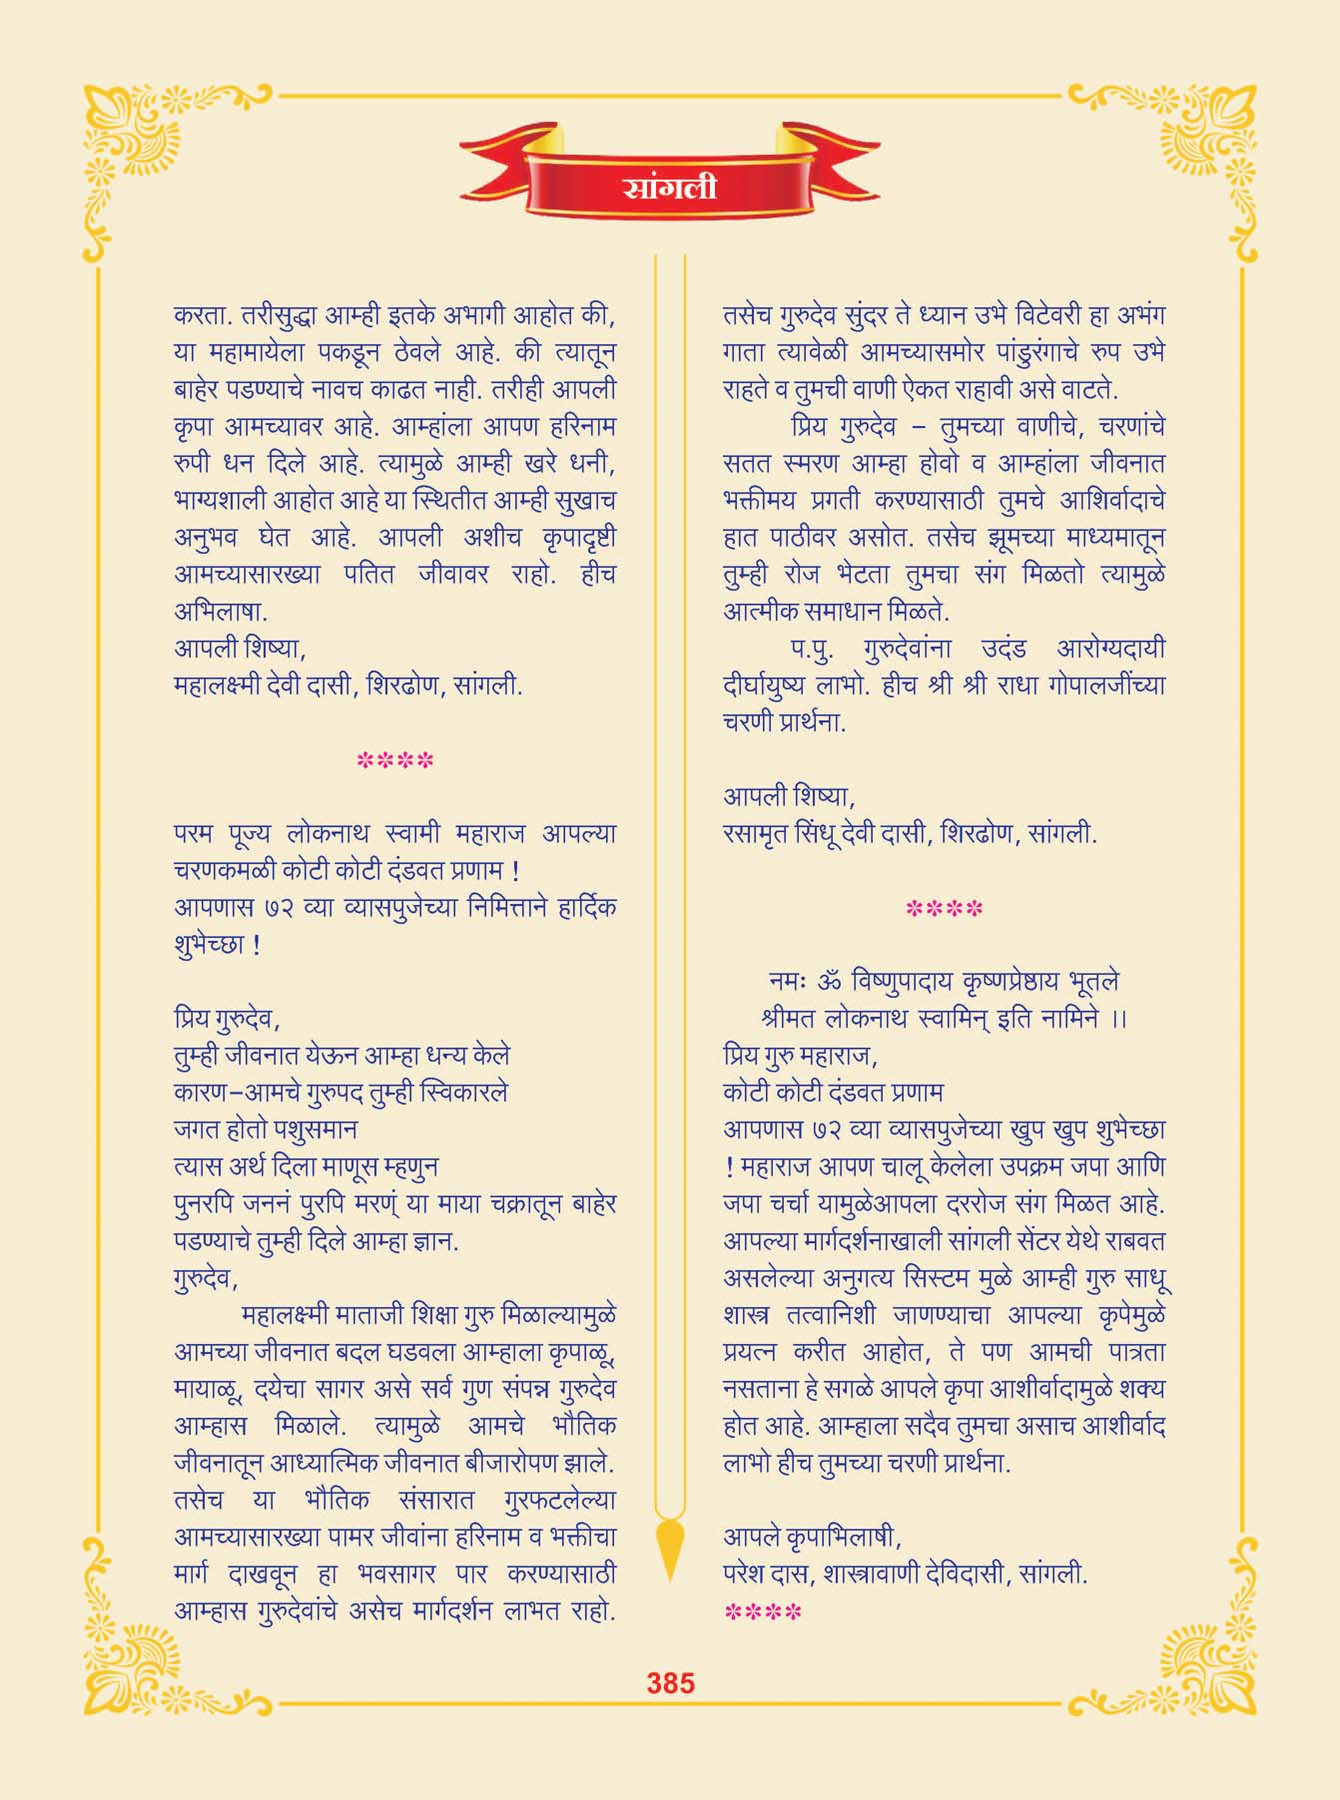 सांगली
करता. तरीसुद्धा आम्ही इतके अभागी आहोत की,
या महामायेला पकडून ठेवले आहे. की त्यातून
बाहेर पडण्याचे नावच काढत नाही. तरीही आपली
कृपा आमच्यावर आहे. आम्हांला आपण हरिनाम
रुपी धन दिले आहे. त्यामुळे आम्ही खरे धनी,
भाग्यशाली आहोत आहे या स्थितीत आम्ही सुखाच
अनुभव घेत आहे. आपली अशीच कृपादृष्टी
आमच्यासारख्या पतित जीवावर राहो. हीच
अभिलाषा.
आपली शिष्या,
महालक्ष्मी देवी दासी, शिरढोण, सांगली.
****
परम पूज्य लोकनाथ स्वामी महाराज आपल्या
चरणकमळी कोटी कोटी दंडवत प्रणाम !
आपणास ७२ व्या व्यासपुजेच्या निमित्ताने हार्दिक
शुभेच्छा !
प्रिय गुरुदेव,
तुम्ही जीवनात येऊन आम्हा धन्य केले
कारण–आमचे गुरुपद तुम्ही स्विकारले
जगत होतो पशुसमान
त्यास अर्थ दिला माणूस म्हणुन
पुनरपि जननं पुरपि मरण्ं या माया चक्रातून बाहेर
पडण्याचे तुम्ही दिले आम्हा ज्ञान.
गुरुदेव,
महालक्ष्मी माताजी शिक्षा गुरु मिळाल्यामुळे
आमच्या जीवनात बदल घडवला आम्हाला कृपाळू,
मायाळू, दयेचा सागर असे सर्व गुण संपन्न गुरुदेव
आम्हास मिळाले. त्यामुळे आमचे भौतिक
जीवनातून आध्यात्मिक जीवनात बीजारोपण झाले.
तसेच या भौतिक संसारात गुरफटलेल्या
आमच्यासारख्या पामर जीवांना हरिनाम व भक्तीचा
मार्ग दाखवून हा भवसागर पार करण्यासाठी
आम्हास गुरुदेवांचे असेच मार्गदर्शन लाभत राहो.
तसेच गुरुदेव सुंदर ते ध्यान उभे विटेवरी हा अभंग
गाता त्यावेळी आमच्यासमोर पांडुरंगाचे रुप उभे
राहते व तुमची वाणी ऐकत राहावी असे वाटते.
प्रिय गुरुदेव – तुमच्या वाणीचे, चरणांचे
सतत स्मरण आम्हा होवो व आम्हांला जीवनात
भक्तीमय प्रगती करण्यासाठी तुमचे आशिर्वादाचे
हात पाठीवर असोत. तसेच झूमच्या माध्यमातून
तुम्ही रोज भेटता तुमचा संग मिळतो त्यामुळे
आत्मीक समाधान मिळते.
प.पु. गुरुदेवांना उदंड आरोग्यदायी
दीर्घायुष्य लाभो. हीच श्री श्री राधा गोपालजींच्या
चरणी प्रार्थना.
आपली शिष्या,
रसामृत सिंधू देवी दासी, शिरढोण, सांगली.
****
नमः ॐ विष्णुपादाय कृष्णप्रेष्ठाय भूतले
श्रीमत लोकनाथ स्वामिन् इति नामिने ।।
प्रिय गुरु महाराज,
कोटी कोटी दंडवत प्रणाम
आपणास ७२ व्या व्यासपुजेच्या खुप खुप शुभेच्छा
! महाराज आपण चालू केलेला उपक्रम जपा आणि
जपा चर्चा यामुळेआपला दररोज संग मिळत आहे.
आपल्या मार्गदर्शनाखाली सांगली सेंटर येथे राबवत
असलेल्या अनुगत्य सिस्टम मुळे आम्ही गुरु साधू
शास्त्र तत्वानिशी जाणण्याचा आपल्या कृपेमुळे
प्रयत्न करीत आहोत, ते पण आमची पात्रता
नसताना हे सगळे आपले कृपा आशीर्वादामुळे शक्य
होत आहे. आम्हाला सदैव तुमचा असाच आशीर्वाद
लाभो हीच तुमच्या चरणी प्रार्थना.
आपले कृपाभिलाषी,
परेश दास, शास्त्रावाणी देविदासी, सांगली.
****
385